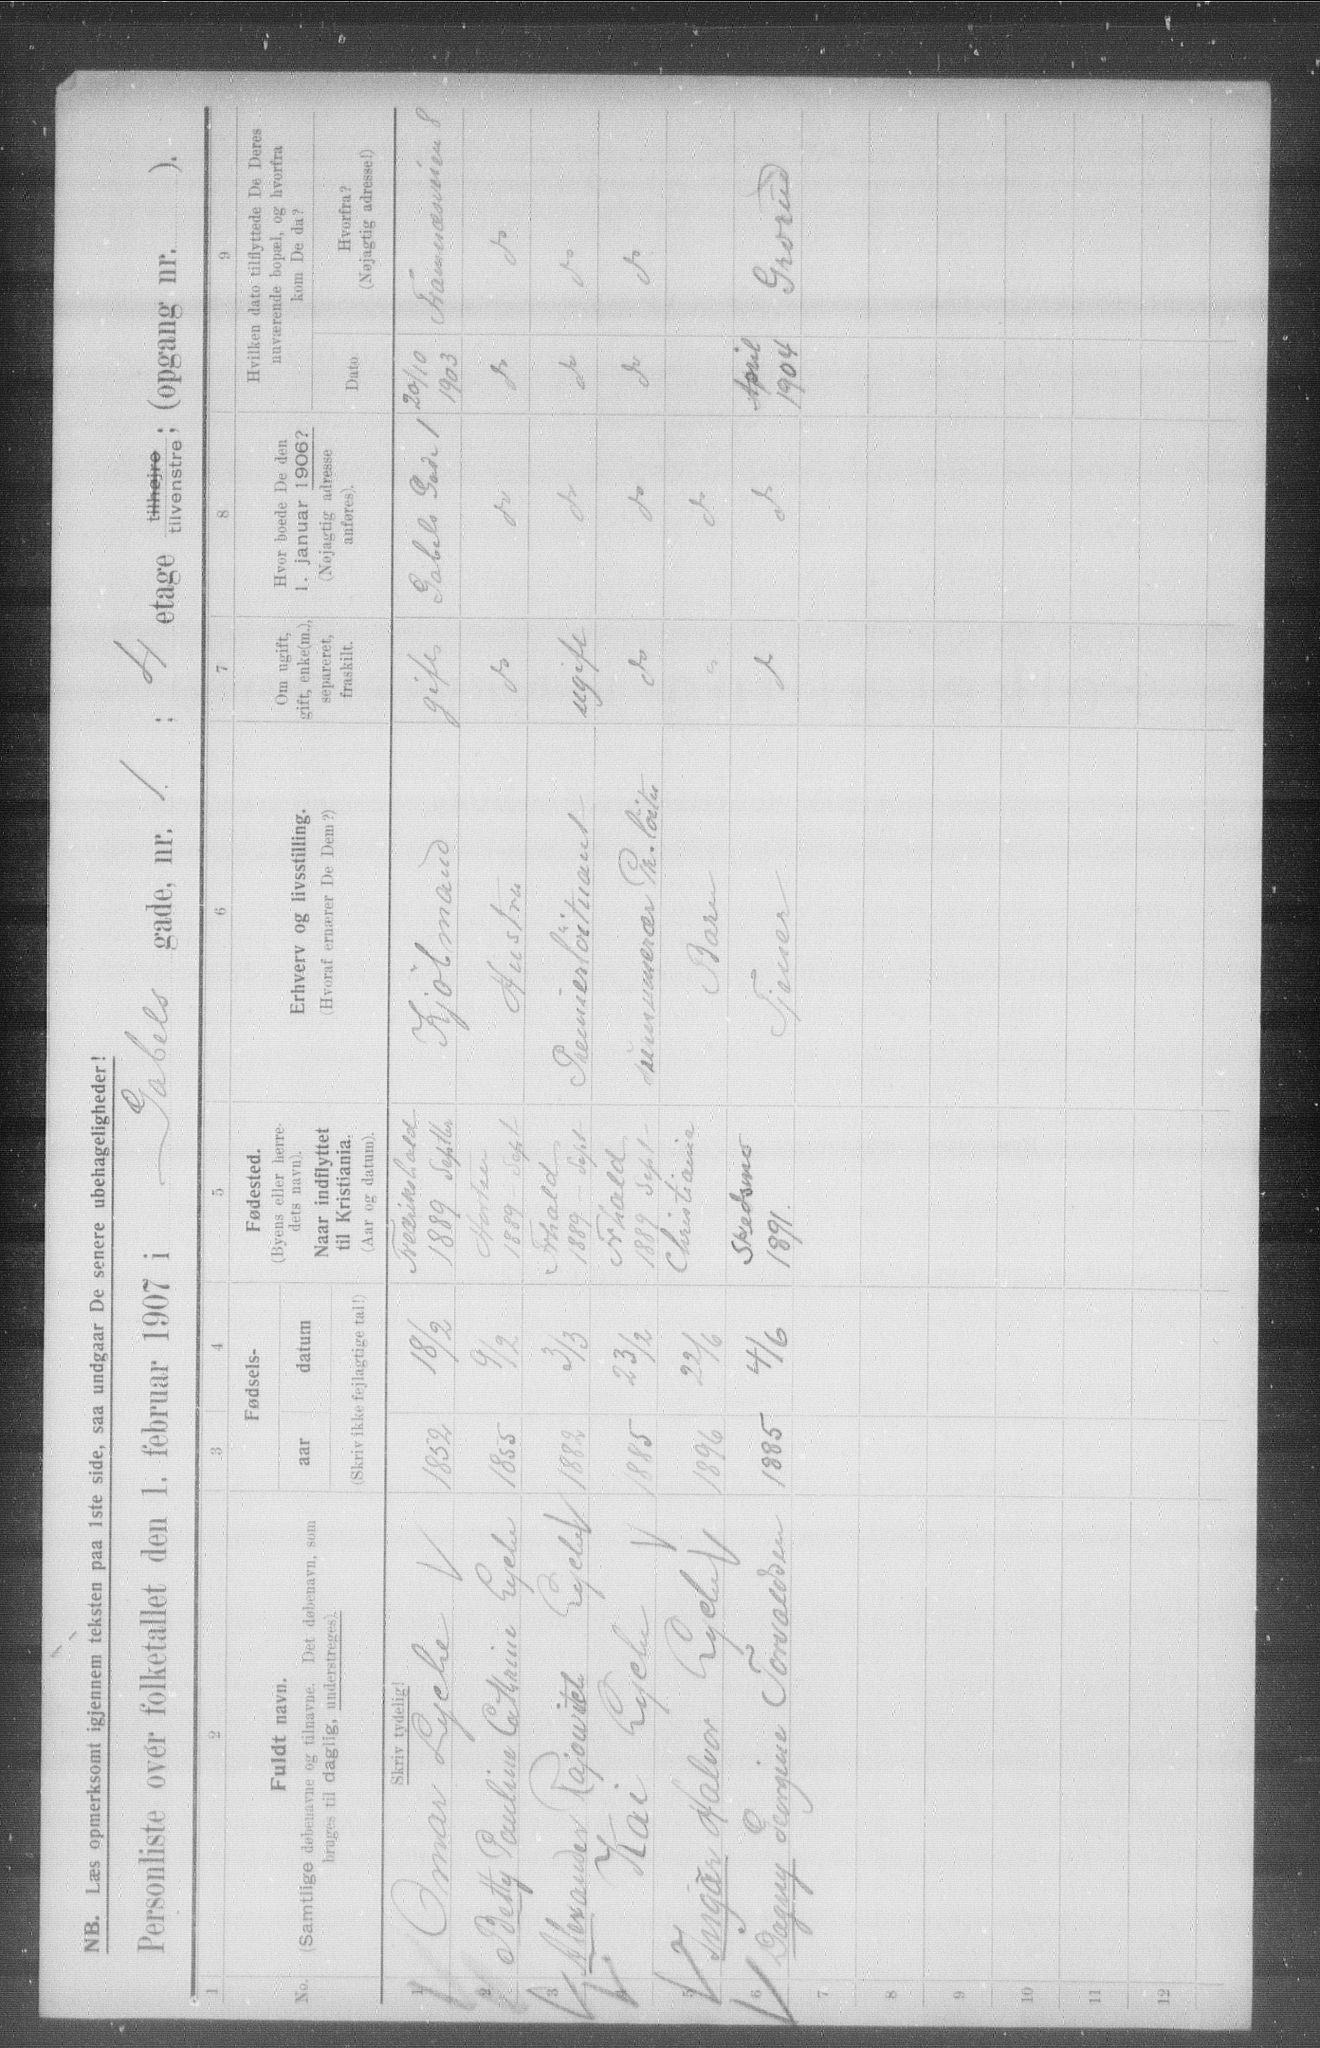 NB. Læs opmerksomt igjennem teksten paa 1ste side, saa undgaar De senere ubehageligheder!
Personliste over folketallet den 1. februar 1907 i Gabels gade, nr. 1 ; 4 etage tilhøjre tilvenstre ; (opgang nr. ).
1 2 3 4 5 6 7 8 9
No.
Fuldt navn.
(Samtlige døbenavne og tilnavne. Det døbenavn, som
bruges til daglig, understreges).
Fødsels-
aar datum
(Skriv ikke fejlagtige tal!)
Fødested.
(Byens eller herre-
dets navn).
Naar indflyttet
til Kristiania.
(Aar og datum).
Erhverv og livsstilling.
(Hvoraf ernærer De Dem?)
Om ugift,
gift, enke(m.),
separeret,
fraskilt.
Hvor boede De den
1. januar 1906?
(Nøjagtig adresse
anføres).
Hvilken dato tilflyttede De Deres
nuværende bopæl, og hvorfra
kom De da?
Dato
Hvorfra?
(Nøjagtig adresse!)
Skriv tydelig!
1 Ommar Lyche 1852 18/2 Fredrikshald 1889 Septbr Kjøbmand gift Gabels Gade 1 20/10 1903 Framnæsveien 8
2 Betty Pauline Cathrine Lyche 1855 9/2 Horten 1889 Sept Hustru do do do do
3 Alexander Lyche 1882 3/3 Fhald 1889 Sept Premierløitnant ugift do do do
4 Kai Lyche 1885 23/2 Fhald 1889 Sept - Pr.løitn do do do do
5 Ingar Halvor Lyche 1896 22/6 Christiania Barn do
6 Dagny Georgine Torvaldsen 1885 4/6 Skedsmo 1891. Tjener do do April 1904 Grorud
7
8
9
10
11
12